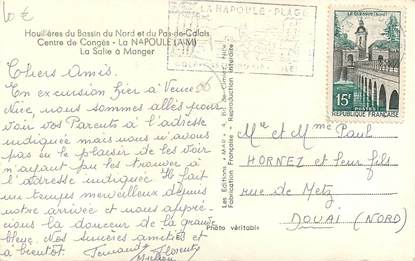 10 €
Houillères du Bassin du Nord et du Pas-de-Calais
Centre de Congés - La NAPOULE (A-M)
La Salle à Manger
LA NAPOULE - PLAGE
LE QUESNOY (Nord)
15F
REPUBLIQUE FRANÇAISE
Chers Amis.
En excursion hier à
Nice, nous sommes allés pour
voir vos Parents à l'adresse
indiquée mais nous n'avons
pas eu le plaisir de les voir
n'ayant pu les trouver à
l'adresse indiquée Il fait
un temps merveilleux depuis
notre arrivée et nous apprécions
la douceur de la grande
bleue. Nos sincères amitiés et
à bientôt. Fernand Florents
Les Editions "MAR"
Fabrication Française - Reproduction Interdite
Photo véritable
Mr et Mme Paul
HORNEZ et leur fils
rue de Metz
DOUAI (NORD)